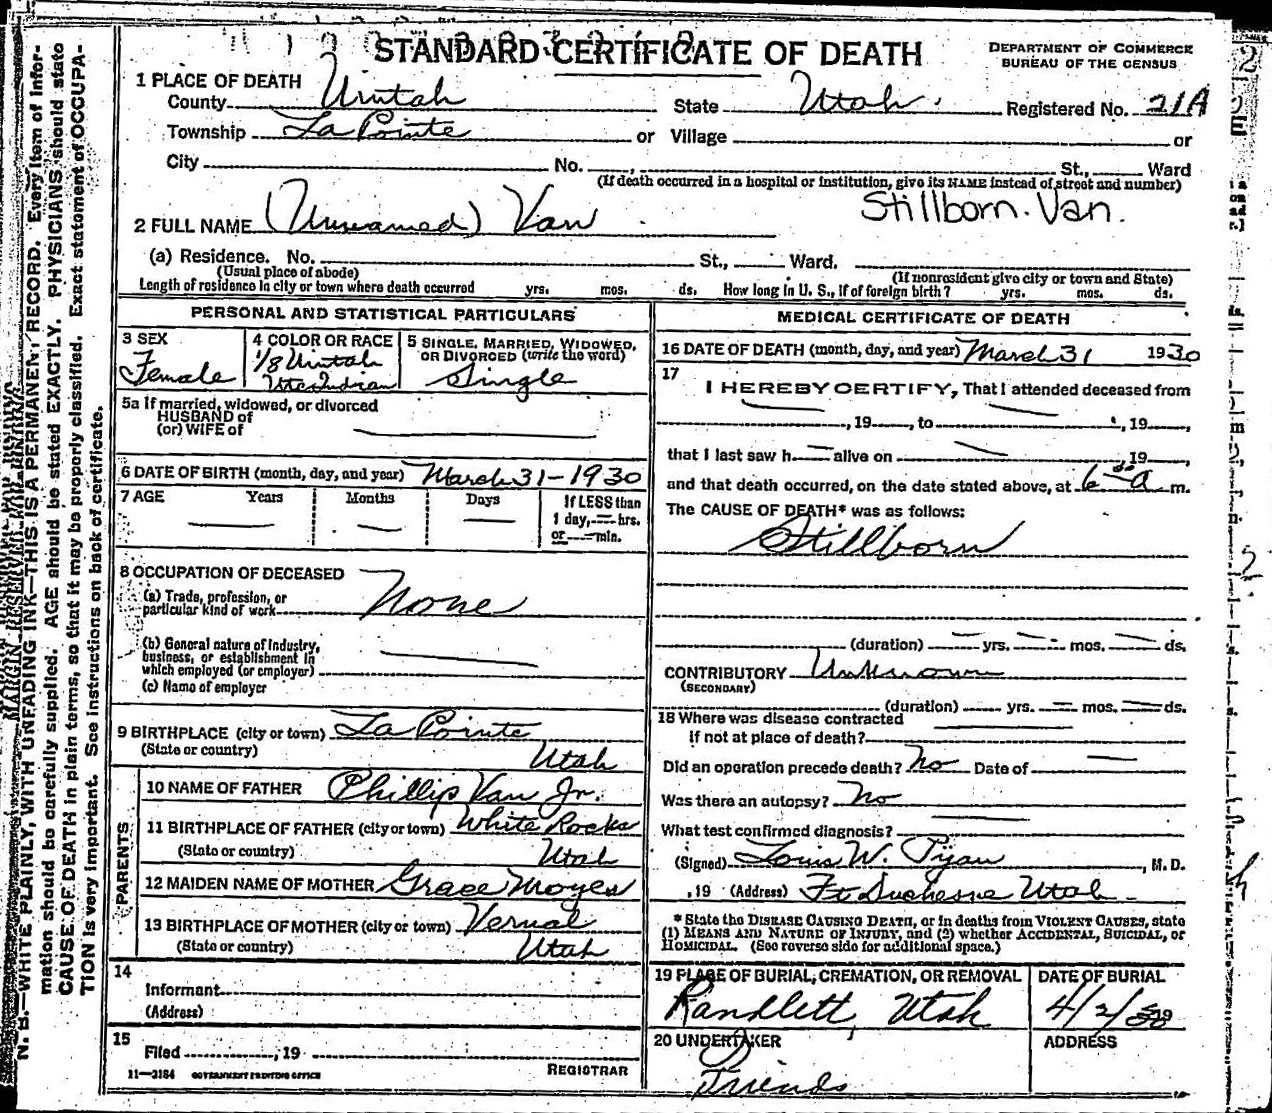 STANDARD CERTIFICATE OF DEATH
DEPARTMENT OF COMMERCE
BUREAU OF THE CENSUS
1 PLACE OF DEATH
County Uintah State Utah. Registered No. 21A
Township La Pointe or Village or
City No. , St., Ward
(If death occurred in a hospital or institution, give its NAME instead of street and number)
Stillborn. Van.
2 FULL NAME (Unnamed) Van
(a) Residence. No. St., Ward.
(Usual place of abode) (If nonresident give city or town and State)
Length of residence in city or town where death occurred yrs. mos. ds. How long in U. S., if of foreign birth? yrs. mos. ds.
PERSONAL AND STATISTICAL PARTICULARS
3 SEX
Female
4 COLOR OR RACE
1/8 Uintah
Ute Indian
5 SINGLE, MARRIED, WIDOWED,
OR DIVORCED (write the word)
Single
5a If married, widowed, or divorced
HUSBAND of
(or) WIFE of
6 DATE OF BIRTH (month, day, and year) March 31-1930
7 AGE Years Months Days If LESS than
1 day, — hrs.
or — min.
8 OCCUPATION OF DECEASED
(a) Trade, profession, or
particular kind of work None
(b) General nature of industry,
business, or establishment in
which employed (or employer)
(c) Name of employer
9 BIRTHPLACE (city or town) La Pointe
(State or country) Utah
PARENTS
10 NAME OF FATHER Phillip Van Jr.
11 BIRTHPLACE OF FATHER (city or town) White Rocks
(State or country) Utah
12 MAIDEN NAME OF MOTHER Grace Moyes
13 BIRTHPLACE OF MOTHER (city or town) Vernal
(State or country) Utah
14
Informant
(Address)
15
Filed , 19
REGISTRAR
11—3184 GOVERNMENT PRINTING OFFICE
MEDICAL CERTIFICATE OF DEATH
16 DATE OF DEATH (month, day, and year) March 31 1930
17
I HEREBY CERTIFY, That I attended deceased from
, 19 , to , 19 ,
that I last saw h — alive on , 19 ,
and that death occurred, on the date stated above, at 6 30 a m.
The CAUSE OF DEATH* was as follows:
Stillborn
(duration) yrs. mos. ds.
CONTRIBUTORY Unknown
(SECONDARY)
(duration) yrs. mos. ds.
18 Where was disease contracted
if not at place of death?
Did an operation precede death? No Date of
Was there an autopsy? No
What test confirmed diagnosis?
(Signed) Louis W. , M. D.
, 19 (Address) Ft Duchesne Utah
* State the DISEASE CAUSING DEATH, or in deaths from VIOLENT CAUSES, state
(1) MEANS AND NATURE OF INJURY, and (2) whether ACCIDENTAL, SUICIDAL, or
HOMICIDAL. (See reverse side for additional space.)
19 PLACE OF BURIAL, CREMATION, OR REMOVAL
Randlett, Utah
DATE OF BURIAL
4/2/30 19
20 UNDERTAKER
Friends
ADDRESS
N. B.—WRITE PLAINLY, WITH UNFADING INK—THIS IS A PERMANENT RECORD. Every item of infor-
mation should be carefully supplied. AGE should be stated EXACTLY. PHYSICIANS should state
CAUSE OF DEATH in plain terms, so that it may be properly classified. Exact statement of OCCUPA-
TION is very important. See instructions on back of certificate.